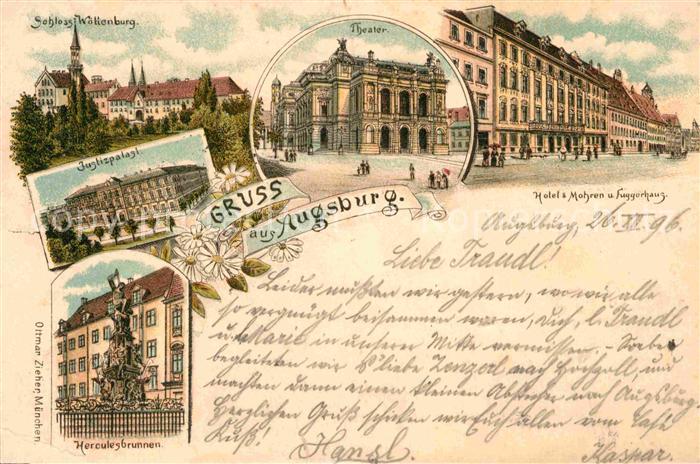 Schloss Wöllenburg.
Theater.
Justizpalast
Hotel 3 Mohren u. Fuggerhaus.
GRUSS
aus Augsburg.
Augsburg, 26. 96.
Liebe Traudl!
Leider mußten wir gestern, wo wir alle
so vergnügt beisammen waren, Dich, l. Traudl
u. Marie in unserer Mitte vermissen. – Soeben
begleiteten wir liebe Zenzerl nach Hochzoll, und
machten dann einen kleinen Abstecher nach Augsburg.
Herzlichen Gruß schicken wir Euch allen vom Café
Kuß!
Hansl. Kaspar.
Herculesbrunnen.
Ottmar Zieher, München.